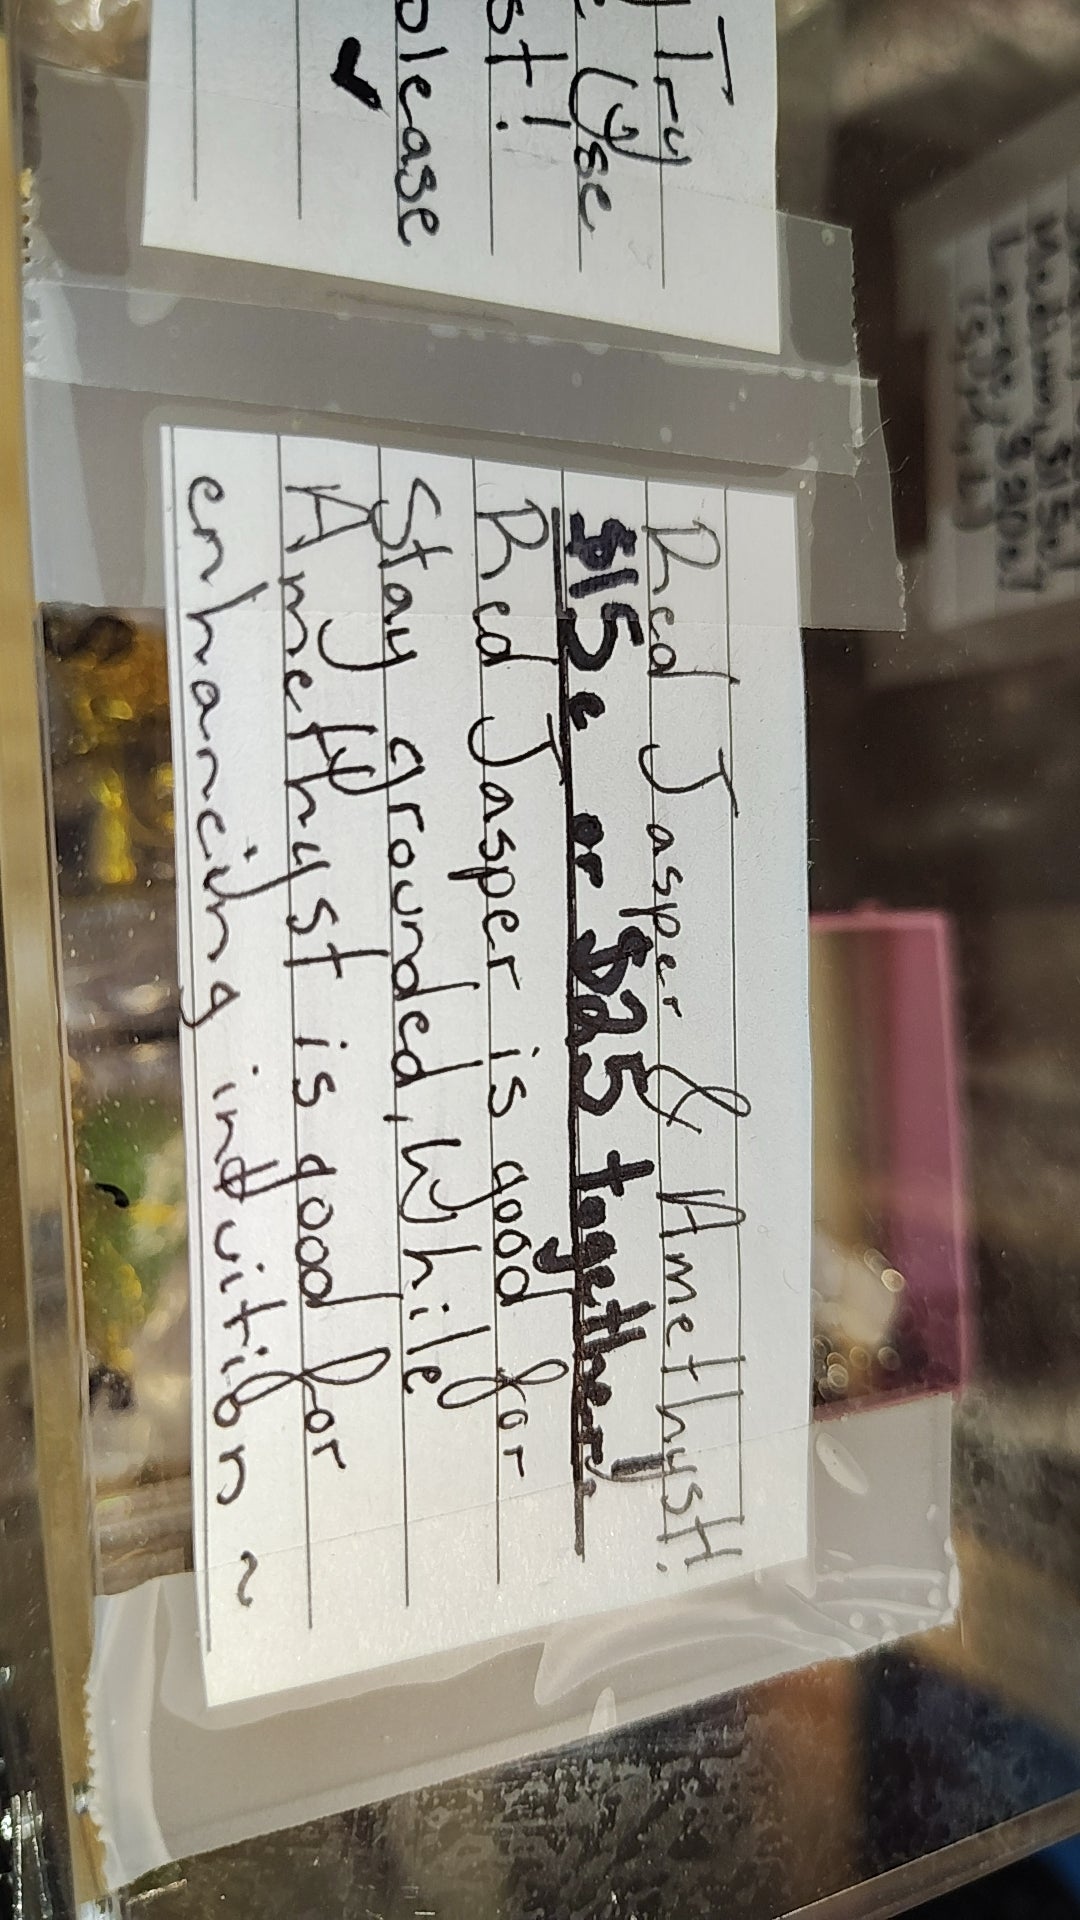 Try
Use
st!
please
Red Jasper & Amethyst!
$15e or $25 together!
Red Jasper is good for
Stay grounded, While
Amethyst is good for
enhancing intuition ~
Medium, $15e!
Large, $30e!